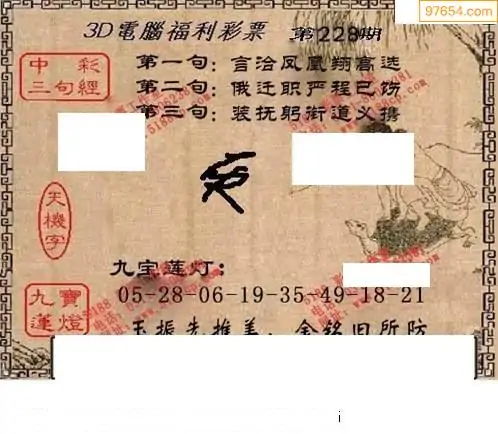 97654.com
3D電腦福利彩票 第228期
中彩三句經
第一句：言洽凤凰翔高选
第二句：俄迁职严程已饬
第三句：装抚躬衔道义携
天機字
九宝莲灯：
九寶蓮燈
05-28-06-19-35-49-18-21
i